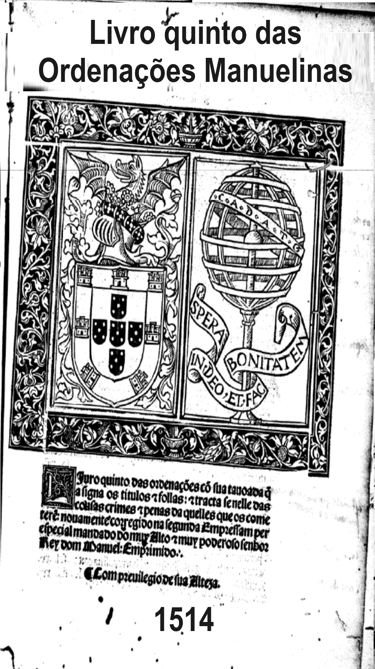 Livro quinto das
Ordenações Manuelinas
SPERA
IN·DEO·ET·FAC
BONITATEM
Liuro quinto das ordenações cõ sua tauoada q̃
asigna os titulos ⁊ follas: ⁊ tracta se nelle das
cousas crimes ⁊ penas da quelles que os come
terẽ: nouamente corregido na segunda Empressam per
especial mandado do muy Alto ⁊ muy poderoso senhor
Rey dom Manuel: Emprimido.·.
¶ Com preuilegio de sua Alteza.
1514